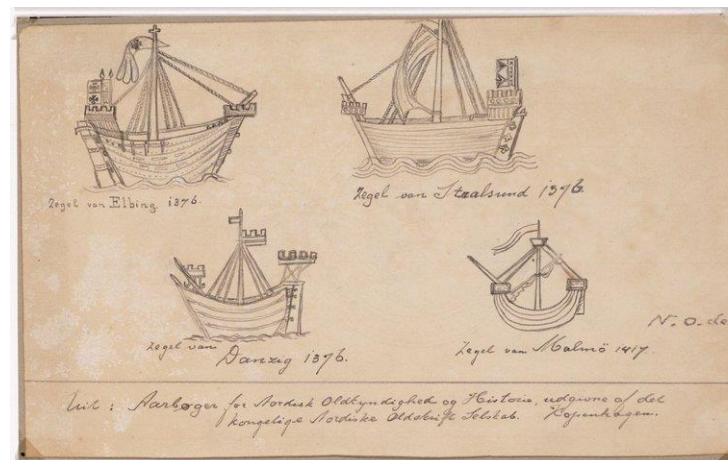 Zegel van Elbing 1376.
Zegel van Straalsund 1376.
Zegel van
Danzig 1376.
Zegel van Malmö 1417.
N. O. de
Uit: Aarbøger for Nordisk Oldkyndighed og Historie, udgivne af det
kongelige Nordiske Oldskrift Selskab. Kopenhagen.